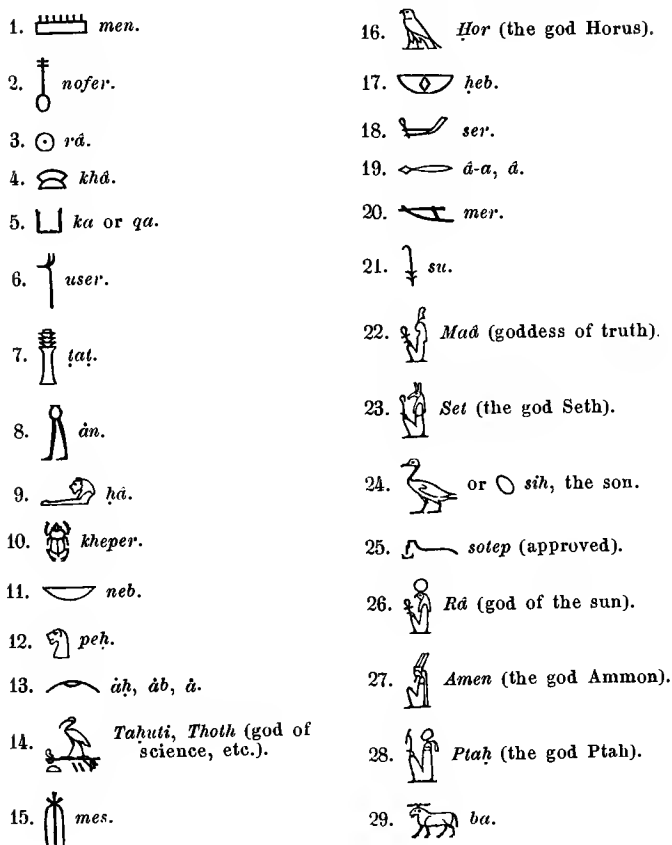 1. men.
2. nofer.
3. râ.
4. khâ.
5. ka or qa.
6. user.
7. ṭaṭ.
8. ȧn.
9. ḥâ.
10. kheper.
11. neb.
12. peḥ.
13. ȧḥ, ȧb, ȧ.
14. Tahuti, Thoth (god of
science, etc.).
15. mes.
16. Ḥor (the god Horus).
17. ḥeb.
18. ser.
19. â-a, â.
20. mer.
21. su.
22. Maâ (goddess of truth).
23. Set (the god Seth).
24. or sih, the son.
25. sotep (approved).
26. Râ (god of the sun).
27. Amen (the god Ammon).
28. Ptaḥ (the god Ptah).
29. ba.